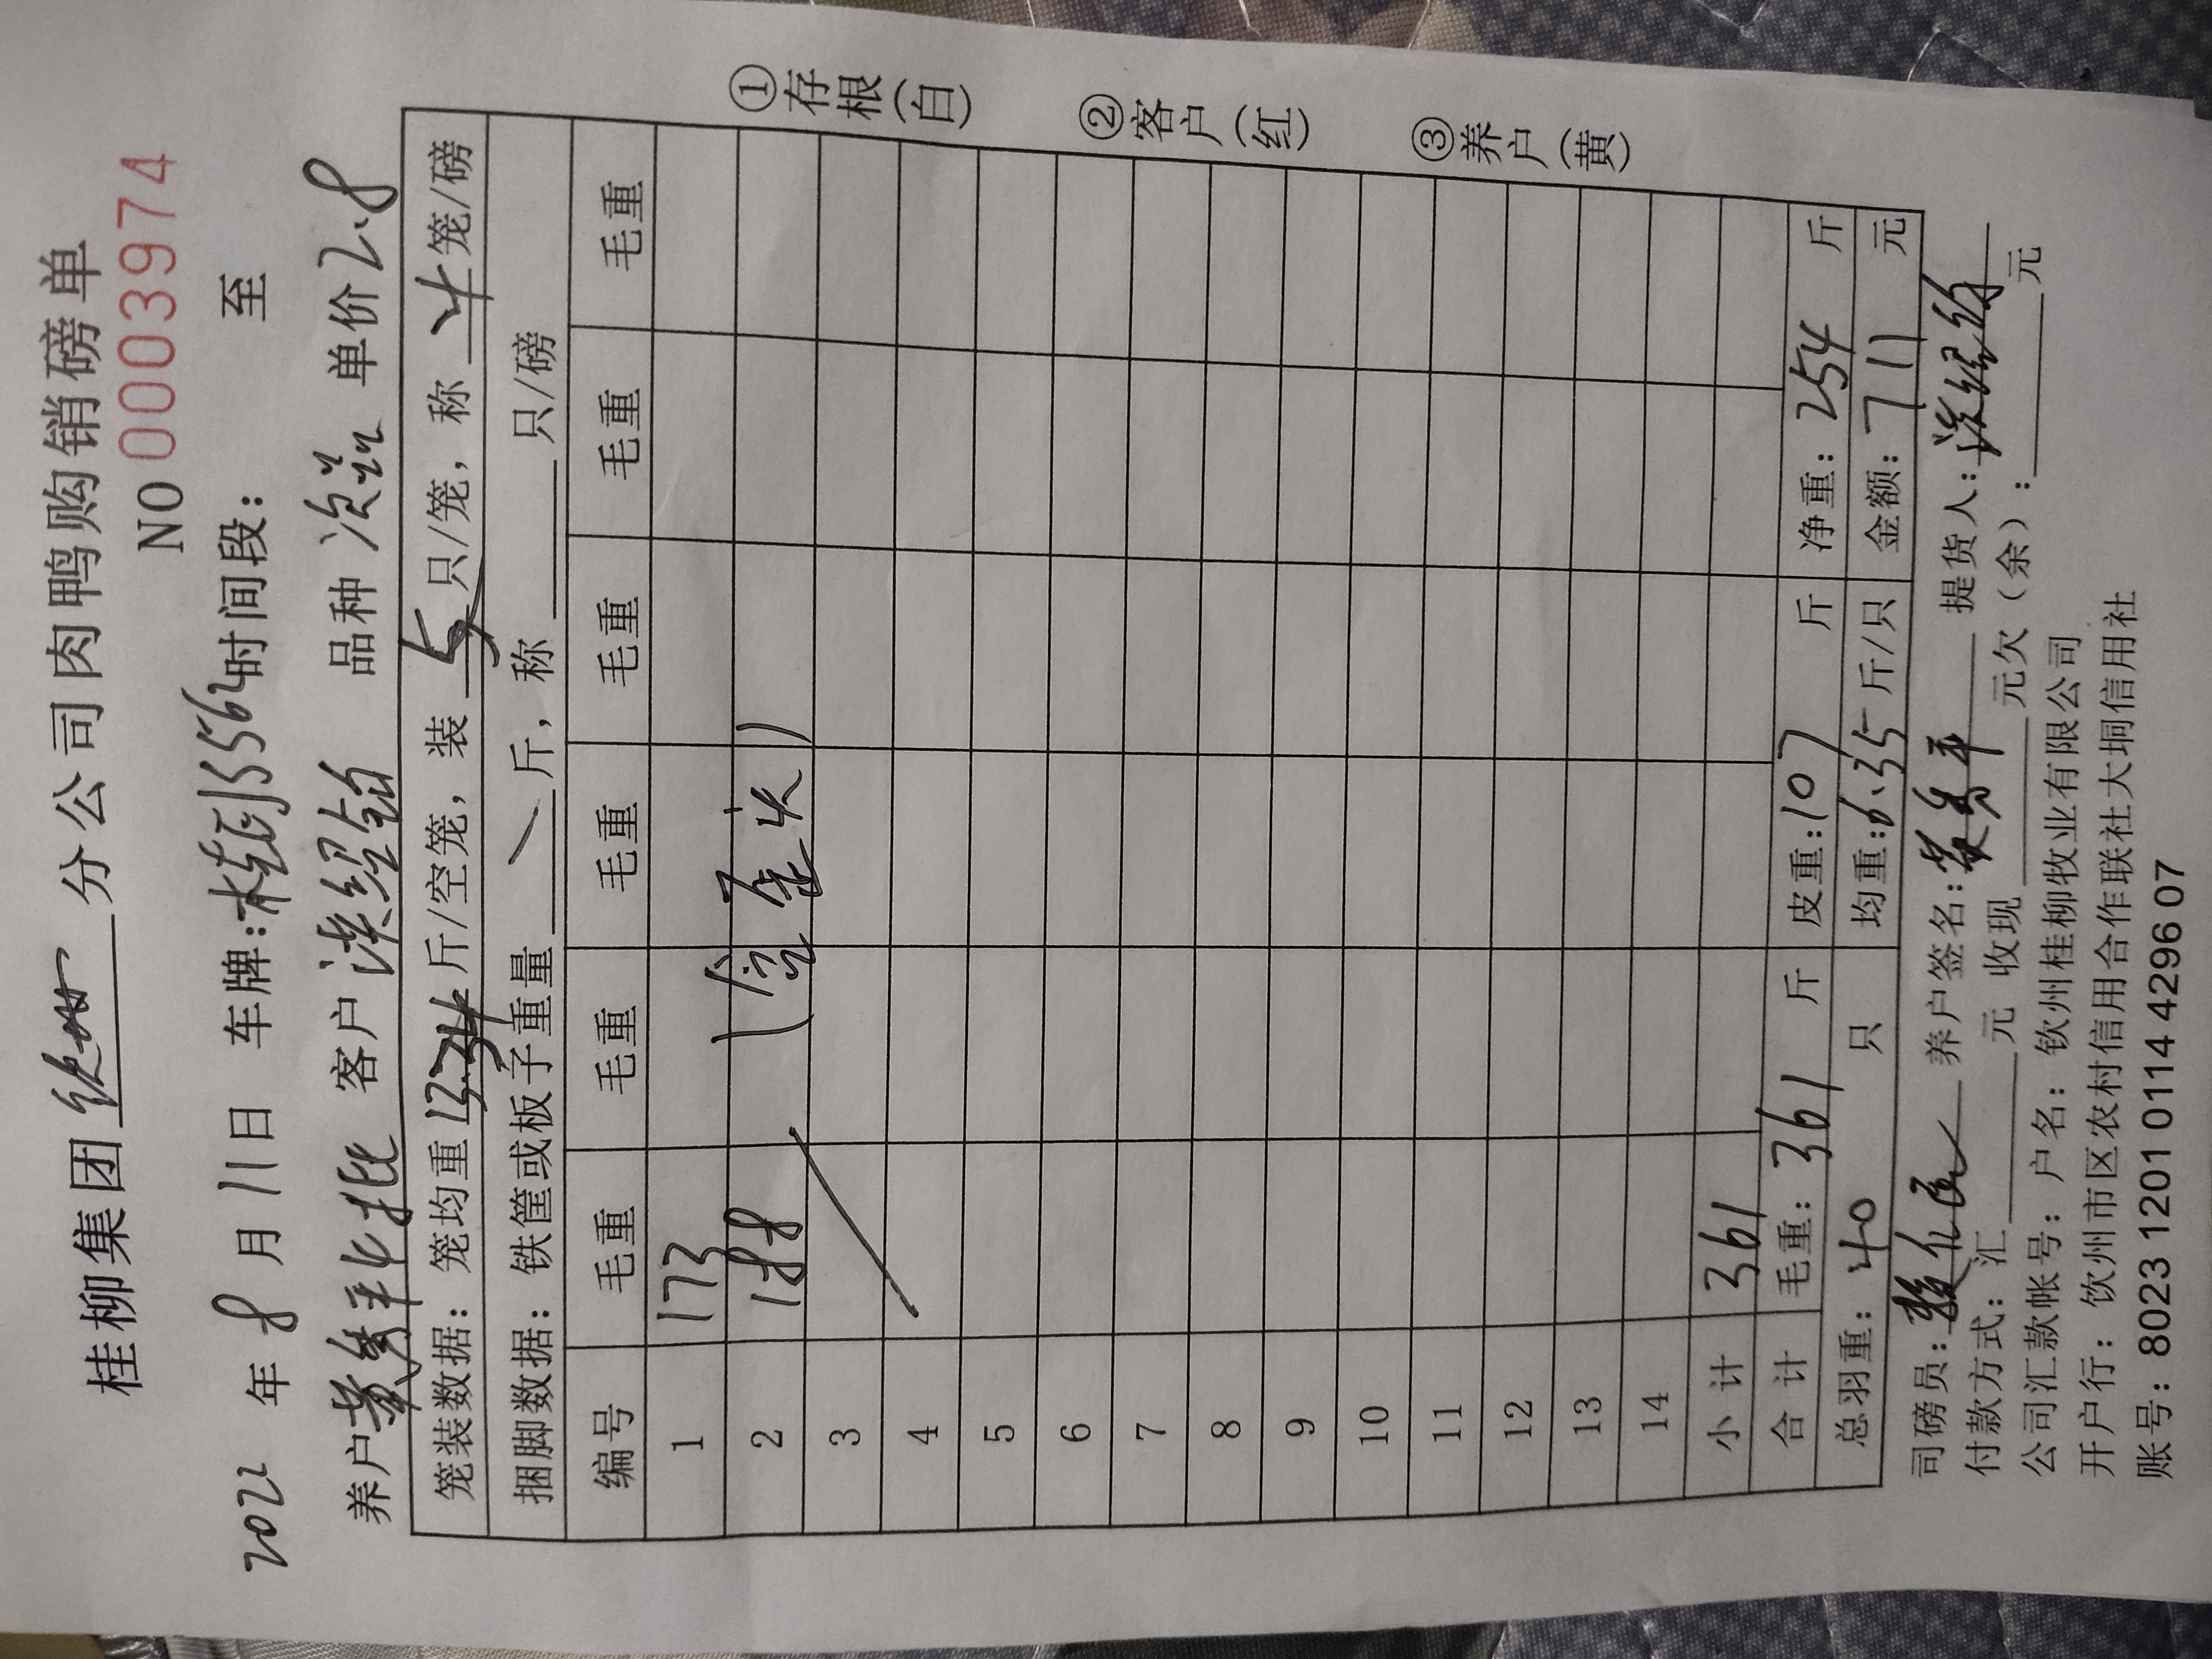 桂柳集团 钦州 分公司肉鸭购销磅单
NO 0003974
2022 年 8 月 11 日 车牌: 时间段: 至
养户 客户 品种 单价 2.8
笼装数据: 笼均重 13.34 斤/空笼, 装 5 只/笼, 称 4 笼/磅
捆脚数据: 铁筐或板子重量 斤, 称 只/磅
编号 毛重 毛重 毛重 毛重 毛重 毛重
1 173
2 188
3
4
5
6
7
8
9
10
11
12
13
14
小计 361
合计 毛重: 361 斤 皮重: 107 斤 净重: 254 斤
总羽重: 40 只 均重: 6.35 斤/只 金额: 711 元
司磅员: 养户签名: 提货人:
付款方式: 汇 元 收现 元欠(余): 元
公司汇款帐号: 户名: 钦州桂柳牧业有限公司
开户行: 钦州市区农村信用合作联社大垌信用社
账号: 8023 1201 0114 4296 07
①存根(白)
②客户(红)
③养户(黄)